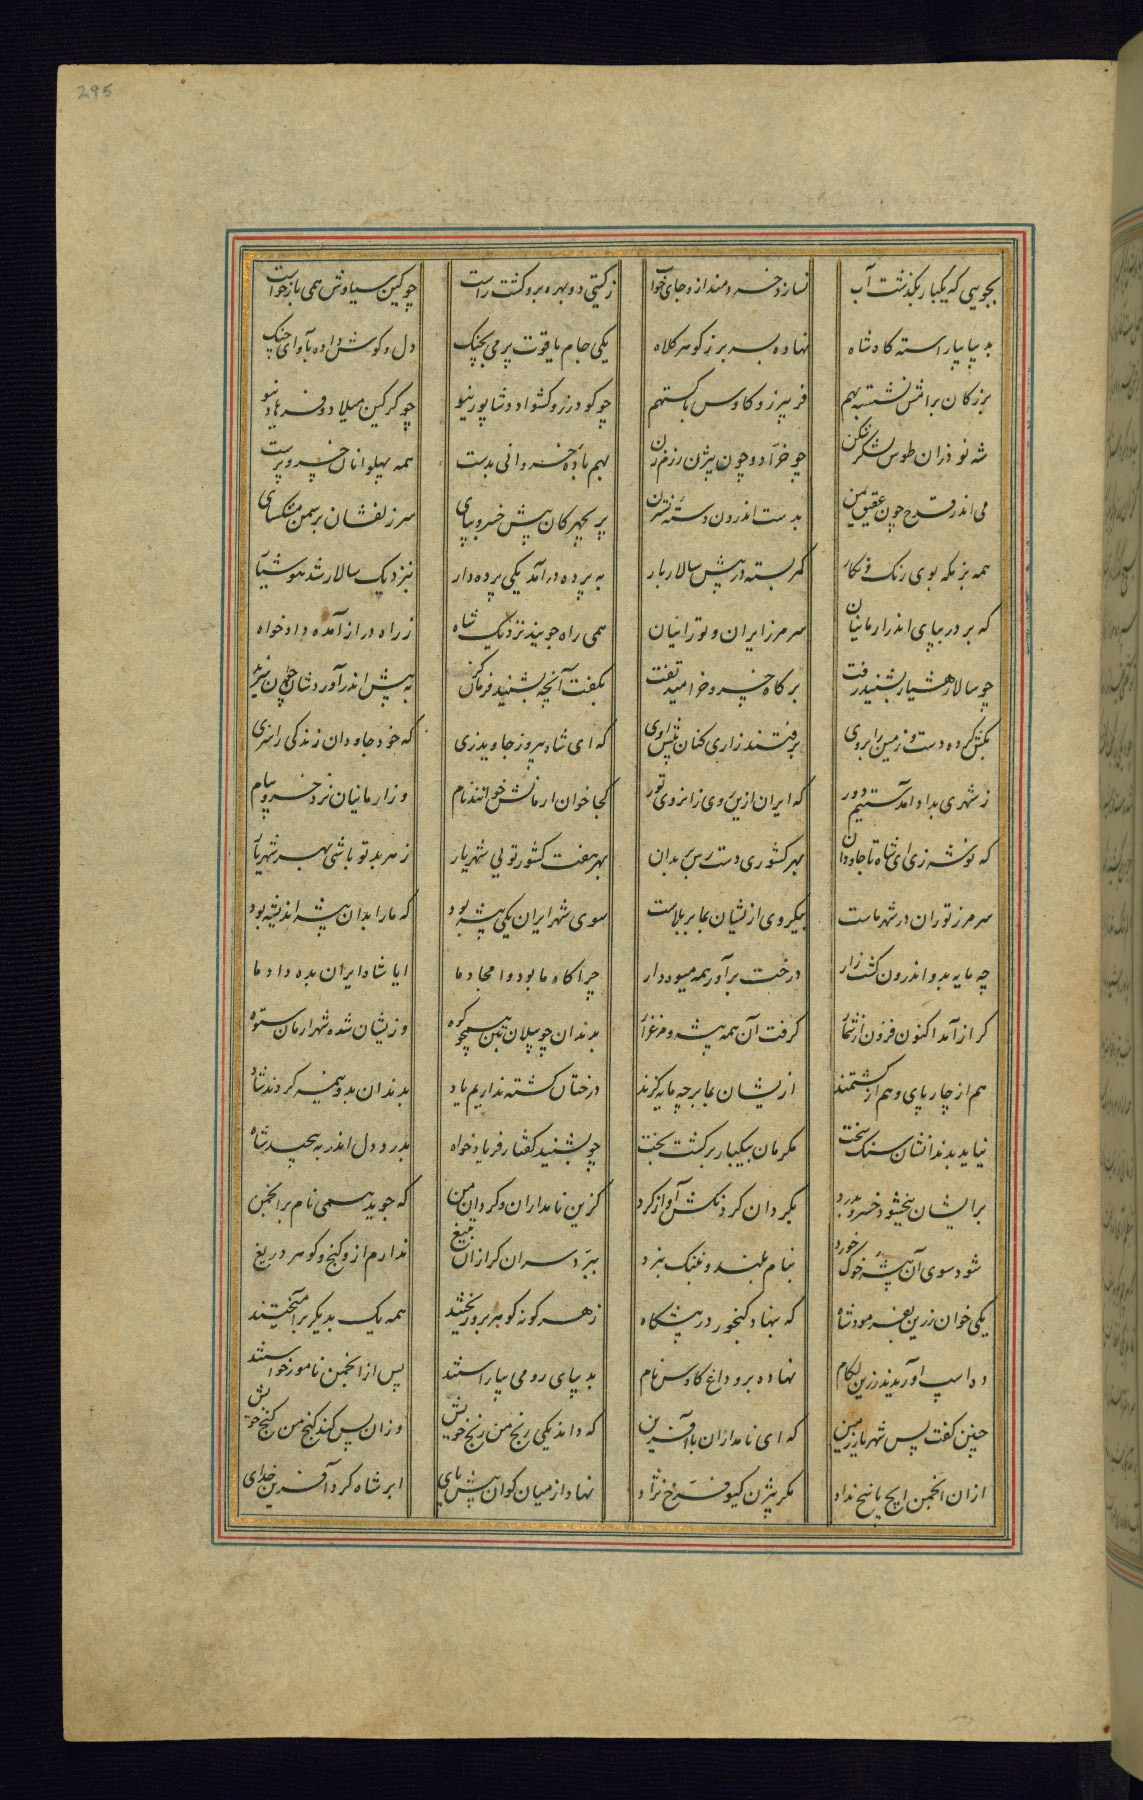 295
بجویی که یکبار بگذشت آب نسازد خردمند ازو جای خواب ز گیتی دو بهره برو گشت راست چو کین سیاوش همی بازخواست
بدیبا بیاراسته گاه شاه نهاده بسر بر ز گوهر کلاه یکی جام یاقوت پر می بچنگ دل و گوش داده بآوای چنگ
بزرگان برامش نشسته بهم فریبرز و کاوس با گستهم چو گودرز و کشواد و شاپور نیو چو گرگین میلاد و فرهاد نیو
شه نوذران طوس لشکرشکن چو خرّاد و چون بیژن رزم زن بهم باده خسروانی بدست همه پهلوانان خسروپرست
می اندر قدح چون عقیق یمن بدست اندرون دسته نسترن پریچهرگان پیش خسرو بپای سر زلفشان بر سمن مشکسای
همه بزمگه بوی و رنگ و نگار کمر بسته در پیش سالار بار به پرده درآمد یکی پرده دار بنزدیک سالار شد هوشیار
که بر در بپای اندر ارمانیان سر مرز ایران و تورانیان همی راه جویند نزدیک شاه ز راه دراز آمده دادخواه
چو سالار هشیار بشنید رفت بر گاه خسرو خرامید تفت بگفت آنچه بشنید فرمان گزید به پیش اندر آوردشان چون سزید
بکش کرده دست و زمین را بروی برفتند زاری کنان پیش اوی که ای شاه پیروز جاوید زی که خود جاودان زندگی را سزی
ز شهری بداد آمدستیم دور که ایران ازین روی زانروی تور کجا خوان ارمانش خوانند نام وز ارمانیان نزد خسرو پیام
که نوشه زی ای شاه تا جاودان بهر کشوری دسترس بر بدان بهر هفت کشور تویی شهریار ز هر بد تو باشی بهر شهر یار
سر مرز توران در شهر ماست بیکروی ازیشان بما بر بلاست سوی شهر ایران یکی بیشه بود که ما را بدان بیشه اندیشه بود
چه مایه بدو اندرون کشت زار درخت برآور همه میوه دار چراگاه ما بود و ماوای ما ایا شاه ایران بده داد ما
گراز آمد اکنون فزون از شمار گرفت آن همه بیشه و مرغزار بدندان چو پیلان بتن همچو کوه وزیشان شده شهر ارمان ستوه
هم از چارپای و هم از کشتمند ازیشان بما بر چه مایه گزند درختان کشته نداریم یاد بدندان بدو نیمه کردند شاد
نیاید بدندانشان سنگ سخت مگرمان بیکبار برگشت بخت چو بشنید گفتار فریادخواه بدرد دل اندر بپیچید شاه
بر ایشان ببخشود خسرو بدرد بگردان گردنکش آواز کرد گزین نامداران و گردان من که جوید همی نام بر انجمن
شود سوی آن بیشه خوک خورد بنام بلند و بننگ نبرد ببرد سران گرازان بتیغ ندارم ازو گنج و گوهر دریغ
یکی خوان زرین بفرمود شاه که بنهاد گنجور در پیشگاه ز هر گونه گوهر برو ریختند همه یک بدیگر برآمیختند
ده اسپ آوریدند زرین لگام نهاده برو داغ کاوس نام بدیبای رومی بیاراستند پس از انجمن نامور خواستند
چنین گفت پس شهریار زمین که ای نامداران باآفرین که داند یکی رنج من رنج خویش وزان پس کند گنج من گنج خویش
ازان انجمن ایچ پاسخ نداد مگر بیژن گیو فرخ نژاد نهاد از میان گوان پیش پای ابر شاه کرد آفرین خدای